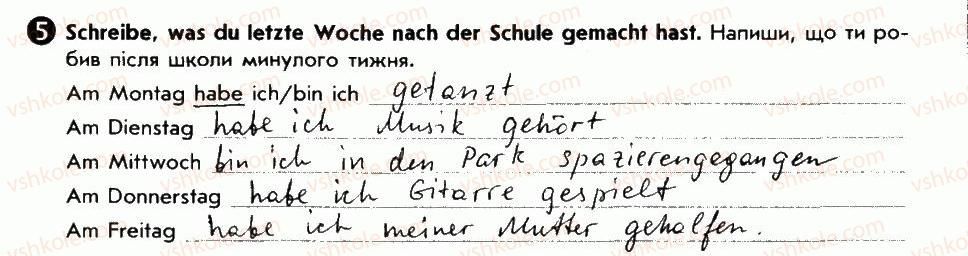 5 Schreibe, was du letzte Woche nach der Schule gemacht hast. Напиши, що ти ро-
бив після школи минулого тижня.
Am Montag habe ich/bin ich getanzt
Am Dienstag habe ich Musik gehört
Am Mittwoch bin ich in den Park spazierengegangen
Am Donnerstag habe ich Gitarre gespielt
Am Freitag habe ich meiner Mutter gehalfen.